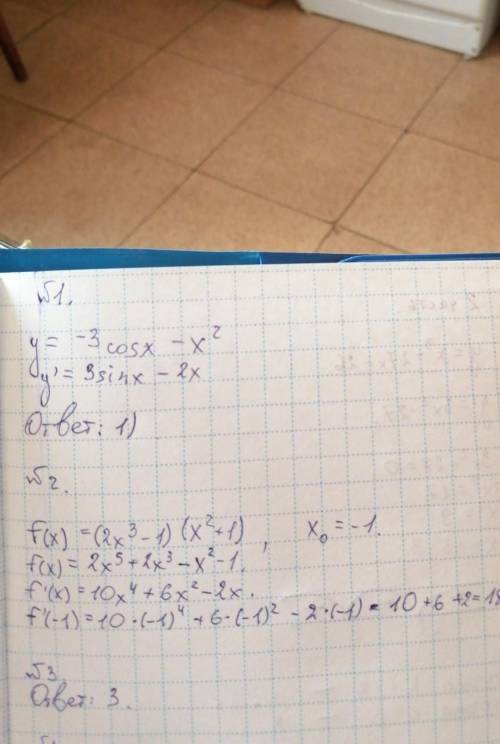 №1.
y = -3cosx - x²
y' = 3sinx - 2x
Ответ: 1)
№2.
f(x) = (2x³-1)(x²+1), x₀ = -1.
f(x) = 2x⁵ + 2x³ - x² - 1.
f'(x) = 10x⁴ + 6x² - 2x.
f'(-1) = 10·(-1)⁴ + 6·(-1)² - 2·(-1) = 10 + 6 + 2 = 18
№3.
Ответ: 3.